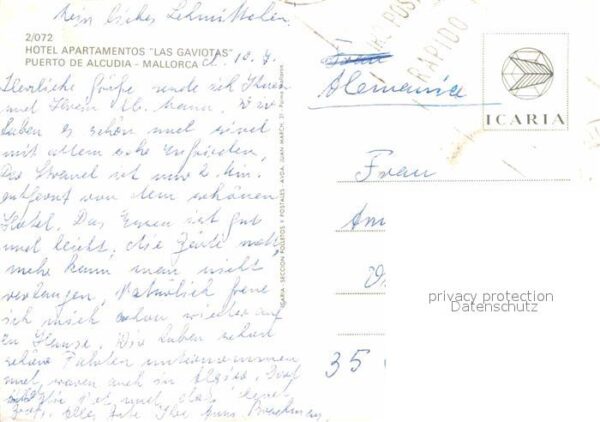 Mein liebes
2/072
HOTEL APARTAMENTOS "LAS GAVIOTAS"
PUERTO DE ALCUDIA - MALLORCA d. 10. 7.
Herzliche Grüße sende ich Ihnen
und Ihrem lb. Mann. Wir
haben es schön und sind
mit allem sehr zufrieden,
Der Strand ist nur 2. Min.
entfernt von dem schönen
Hotel. Das Essen ist gut
und leicht, die Leute nett,
mehr kann man nicht
verlangen, Natürlich freue
ich mich schon wieder auf
zu Hause. Wir haben schon
schöne Fahrten unternommen
und waren auch in
und das
alles Gute Ihre
ICARIA - SECCION POSTERS Y POSTALES - AVDA. JUAN MARCH, 21 Palma
POST
RAPIDO
Alemania
ICARIA
Frau
35
privacy protection
Datenschutz